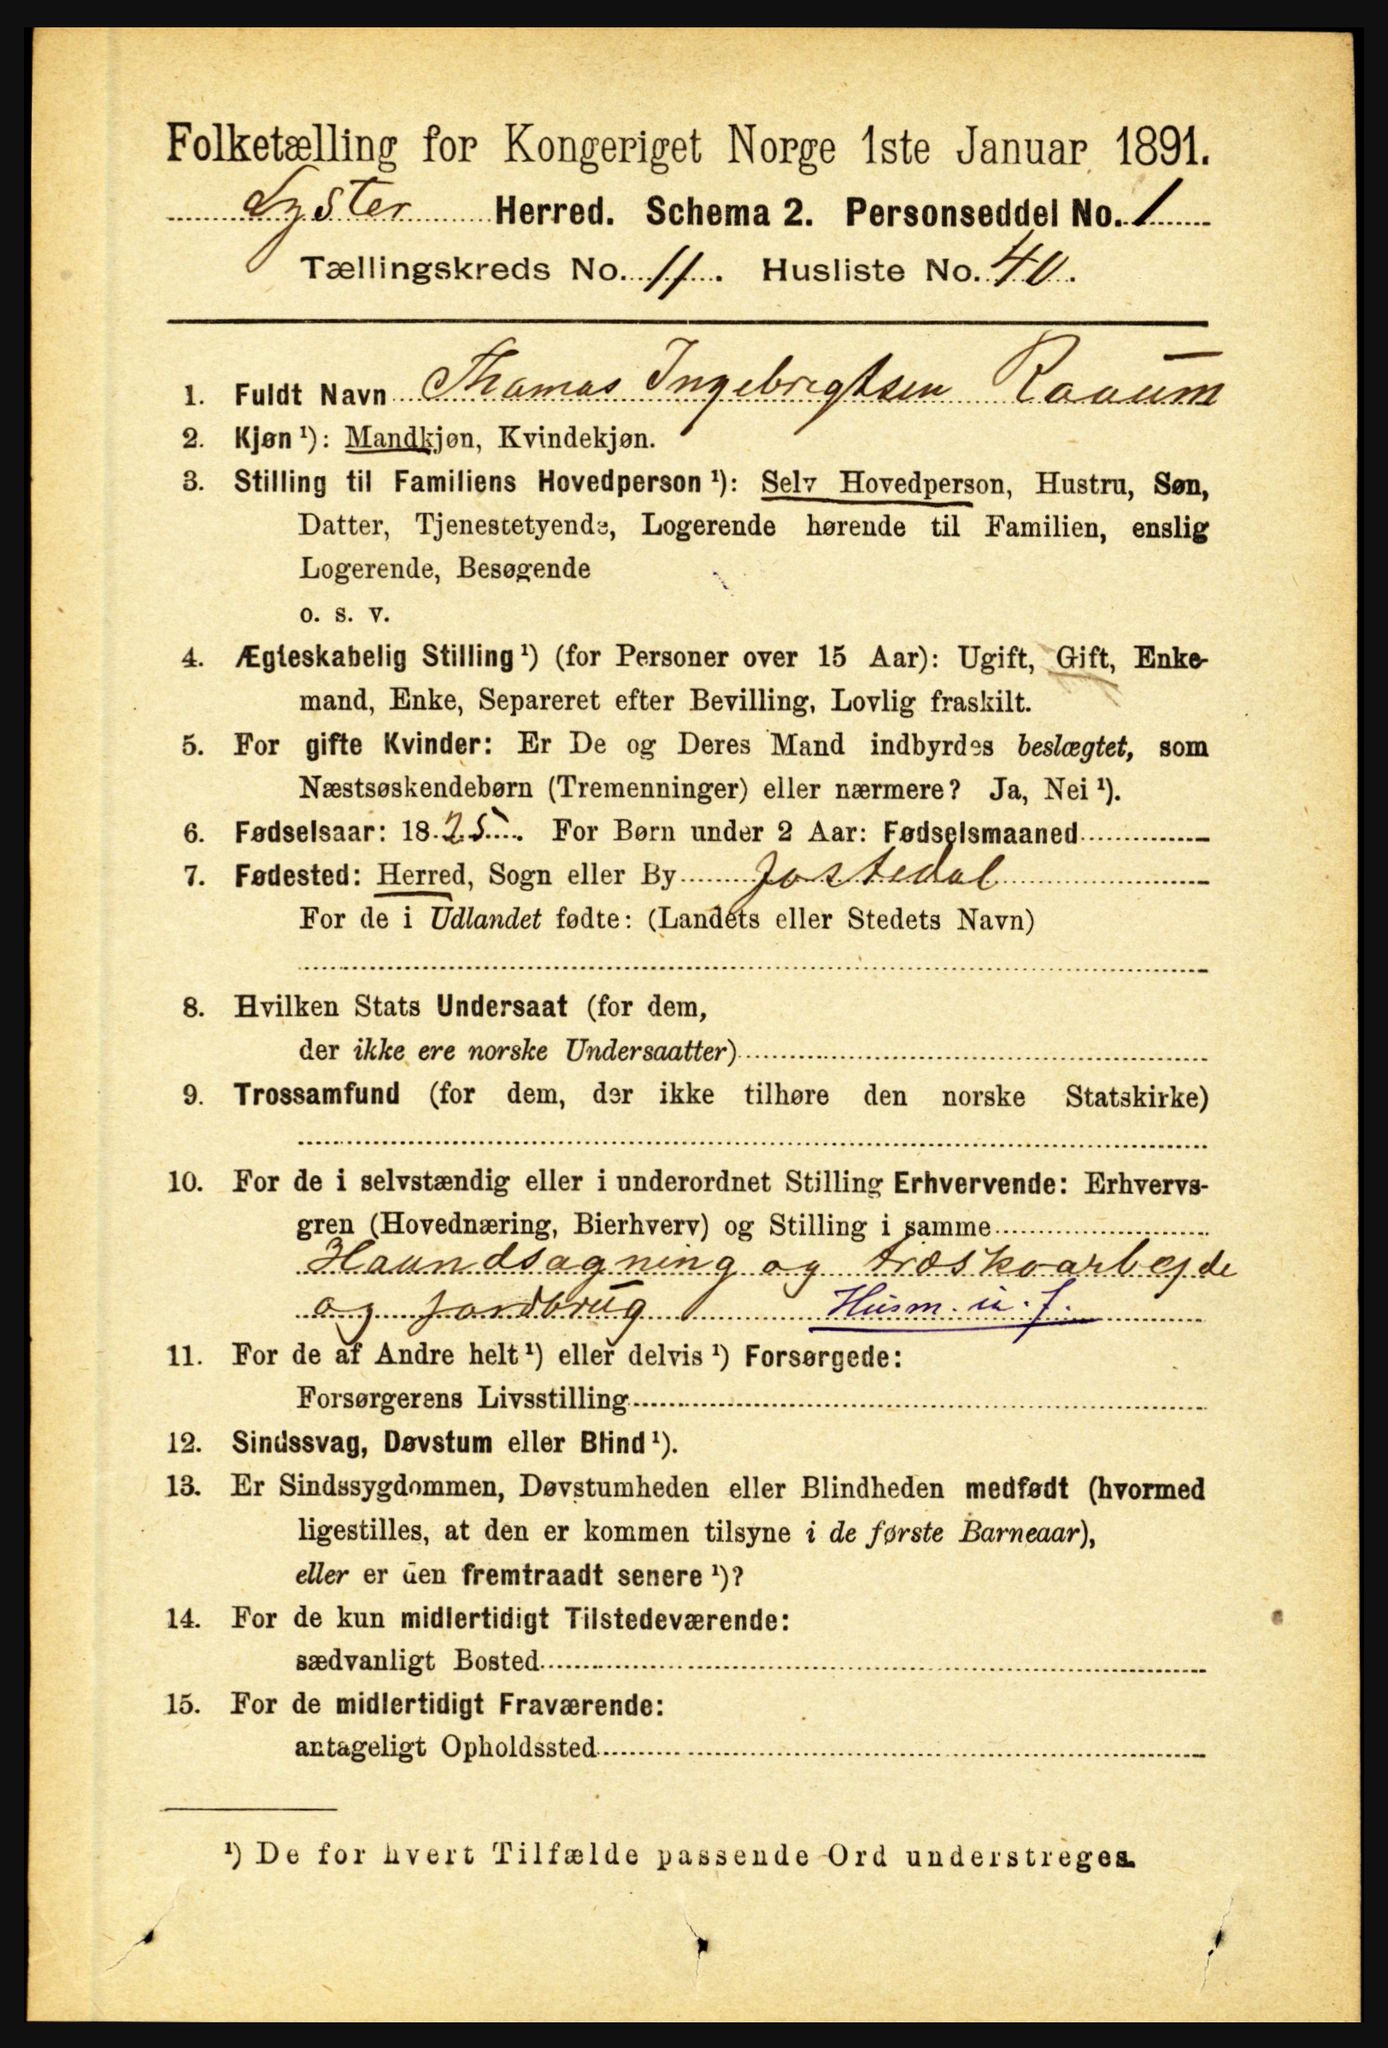 Folketælling for Kongeriget Norge 1ste Januar 1891.
Lyster Herred. Schema 2. Personseddel No. 1
Tællingskreds No. 11. Husliste No. 40.
1. Fuldt Navn Thomas Ingebrigtsen Raaum
2. Kjøn¹): Mandkjøn, Kvindekjøn.
3. Stilling til Familiens Hovedperson¹): Selv Hovedperson, Hustru, Søn,
Datter, Tjenestetyende, Logerende hørende til Familien, enslig
Logerende, Besøgende
o. s. v.
4. Ægteskabelig Stilling¹) (for Personer over 15 Aar): Ugift, Gift, Enke-
mand, Enke, Separeret efter Bevilling, Lovlig fraskilt.
5. For gifte Kvinder: Er De og Deres Mand indbyrdes beslægtet, som
Næstsøskendebørn (Tremenninger) eller nærmere? Ja, Nei¹).
6. Fødselsaar: 1825. For Børn under 2 Aar: Fødselsmaaned
7. Fødested: Herred, Sogn eller By Jostedal
For de i Udlandet fødte: (Landets eller Stedets Navn)
8. Hvilken Stats Undersaat (for dem,
der ikke ere norske Undersaatter)
9. Trossamfund (for dem, der ikke tilhøre den norske Statskirke)
10. For de i selvstændig eller i underordnet Stilling Erhvervende: Erhvervs-
gren (Hovednæring, Bierhverv) og Stilling i samme
Haandsagning og træskoarbejde
og jordbrug Husm. m. J.
11. For de af Andre helt¹) eller delvis¹) Forsørgede:
Forsørgerens Livsstilling
12. Sindssvag, Døvstum eller Blind¹).
13. Er Sindssygdommen, Døvstumheden eller Blindheden medfødt (hvormed
ligestilles, at den er kommen tilsyne i de første Barneaar),
eller er den fremtraadt senere¹)?
14. For de kun midlertidigt Tilstedeværende:
sædvanligt Bosted
15. For de midlertidigt Fraværende:
antageligt Opholdssted
¹) De for hvert Tilfælde passende Ord understreges.